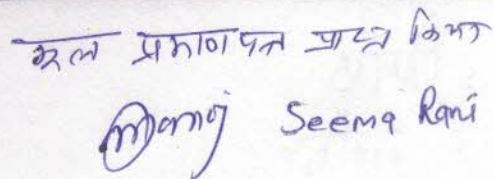 मूल प्रमाण पत्र प्राप्त किया
Seema Rani